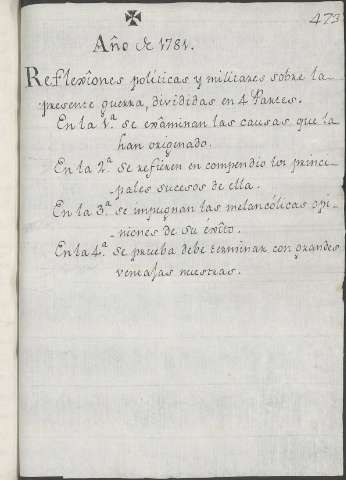 473
Año de 1781.
Reflexîones políticas y militares sobre la
presente guerra, divididas en 4 Partes.
En la 1.ª se exâminan las causas que la
han originado.
En la 2.ª Se refieren en compendio los princi-
-pales sucesos de ella.
En la 3.ª se impugnan las melancólicas opi-
-niones de su éxîto.
En la 4.ª Se prueba debe terminar con grandes
ventajas nuestras.